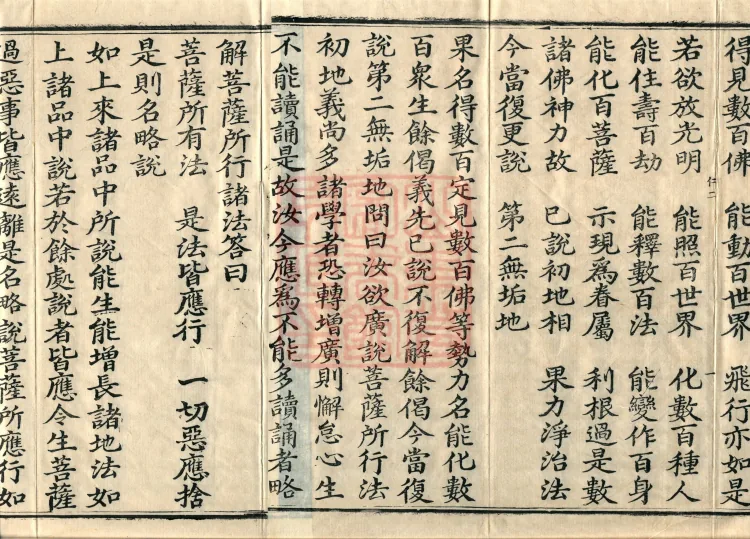 得見數百佛 能動百世界 飛行亦如是
若欲放光明 能照百世界 化數百種人
能住壽百劫 能釋數百法 能變作百身
能化百菩薩 示現為眷屬 利根過是數
諸佛神力故 已說初地相 果力淨治法
今當復更說 第二無垢地
果名得數百定見數百佛等勢力名能化數
百衆生餘偈義先已說不復解餘偈今當復
說第二無垢地問曰汝欲廣說菩薩所行法
初地義尚多諸學者恐轉增廣則懈怠心生
不能讀誦是故汝今應為不能多讀誦者略
解菩薩所行諸法答曰
菩薩所有法 是法皆應行 一切惡應捨
是則名略說
如上來諸品中所說能生能增長諸地法如
上諸品中說若於餘處說者皆應令生菩薩
過惡事皆應遠離是名略說菩薩所應行如